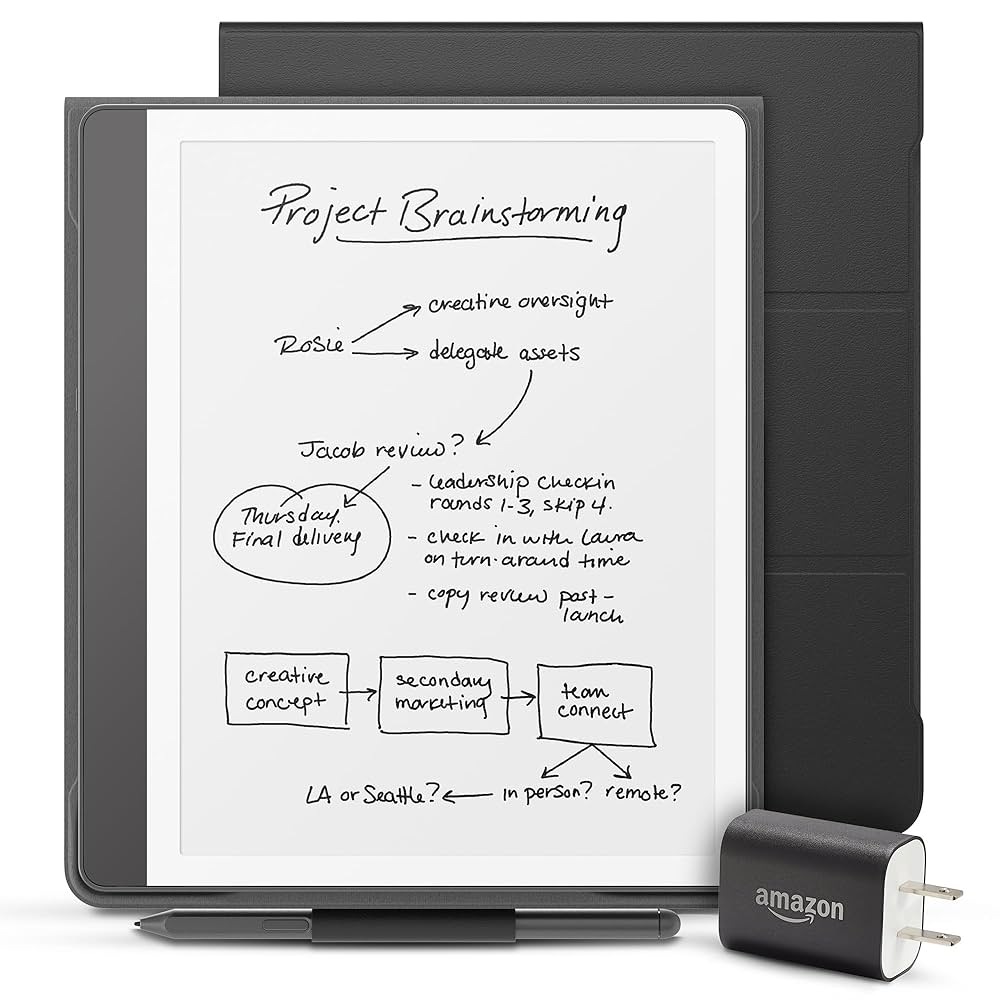 Project Brainstorming
Rosie
creative oversight
delegate assets
Jacob review?
Thursday.
Final delivery
- leadership checkin
rounds 1-3, skip 4.
- check in with Laura
on turn-around time
- copy review post-
launch
creative
concept
secondary
marketing
team
connect
LA or Seattle?
in person?
remote?
amazon